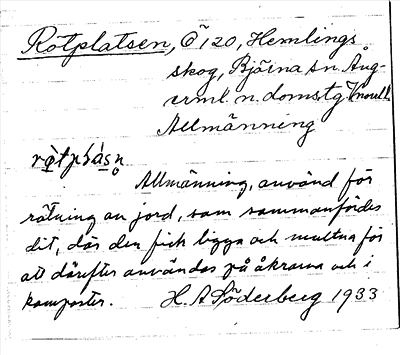 Rötplatsen, Ö 120, Hemlings
skog, Bjärna sn. Ång-
erml. n. domstg. Vnorrl.
Allmänning
Allmänning, använd för
rötning av jord, som sammanfördes
dit, där den fick ligga och multna för
att därefter användas på åkrarna och i
komposter. H. A. Söderberg 1933